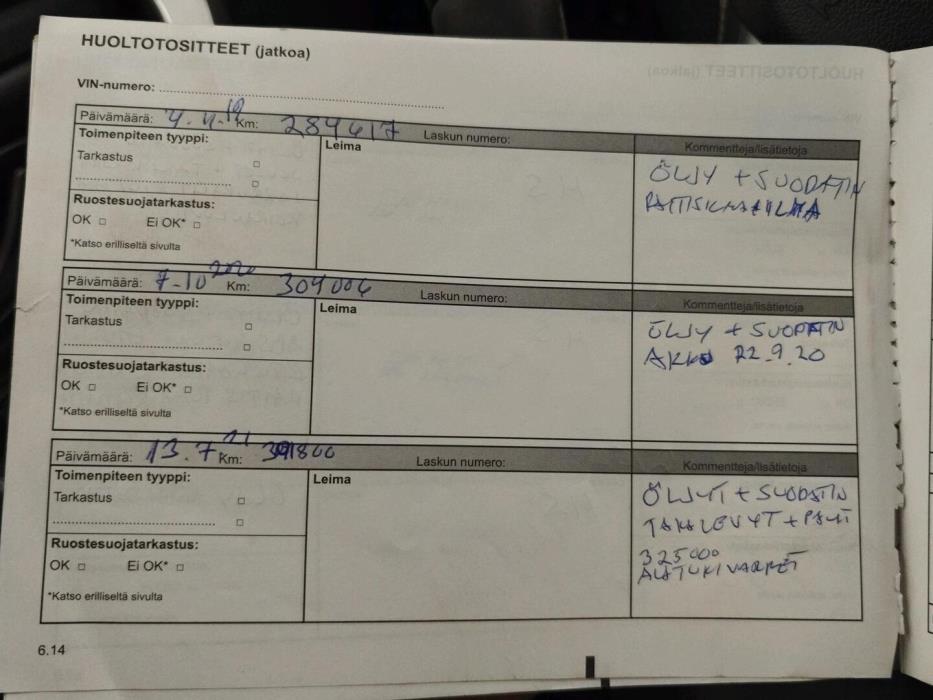 HUOLTOTOSITTEET (jatkoa)
VIN-numero:
Päivämäärä: 4.4.19 Km: 289417 Laskun numero:
Toimenpiteen tyyppi: Leima Kommentteja/lisätietoja
Tarkastus ÖLJY + SUODATIN
RAITISILMA
Ruostesuojatarkastus:
OK Ei OK*
*Katso erilliseltä sivulta
Päivämäärä: 7-10 2020 Km: 309006 Laskun numero:
Toimenpiteen tyyppi: Leima Kommentteja/lisätietoja
Tarkastus ÖLJY + SUODATIN
AKKU 22.9.20
Ruostesuojatarkastus:
OK Ei OK*
*Katso erilliseltä sivulta
Päivämäärä: 13.7 21 Km: Laskun numero:
Toimenpiteen tyyppi: Leima Kommentteja/lisätietoja
Tarkastus ÖLJYT + SUODATIN
TAKALEVYT + PALAT
Ruostesuojatarkastus: 325000
OK Ei OK* ALATUKIVARRET
*Katso erilliseltä sivulta
6.14